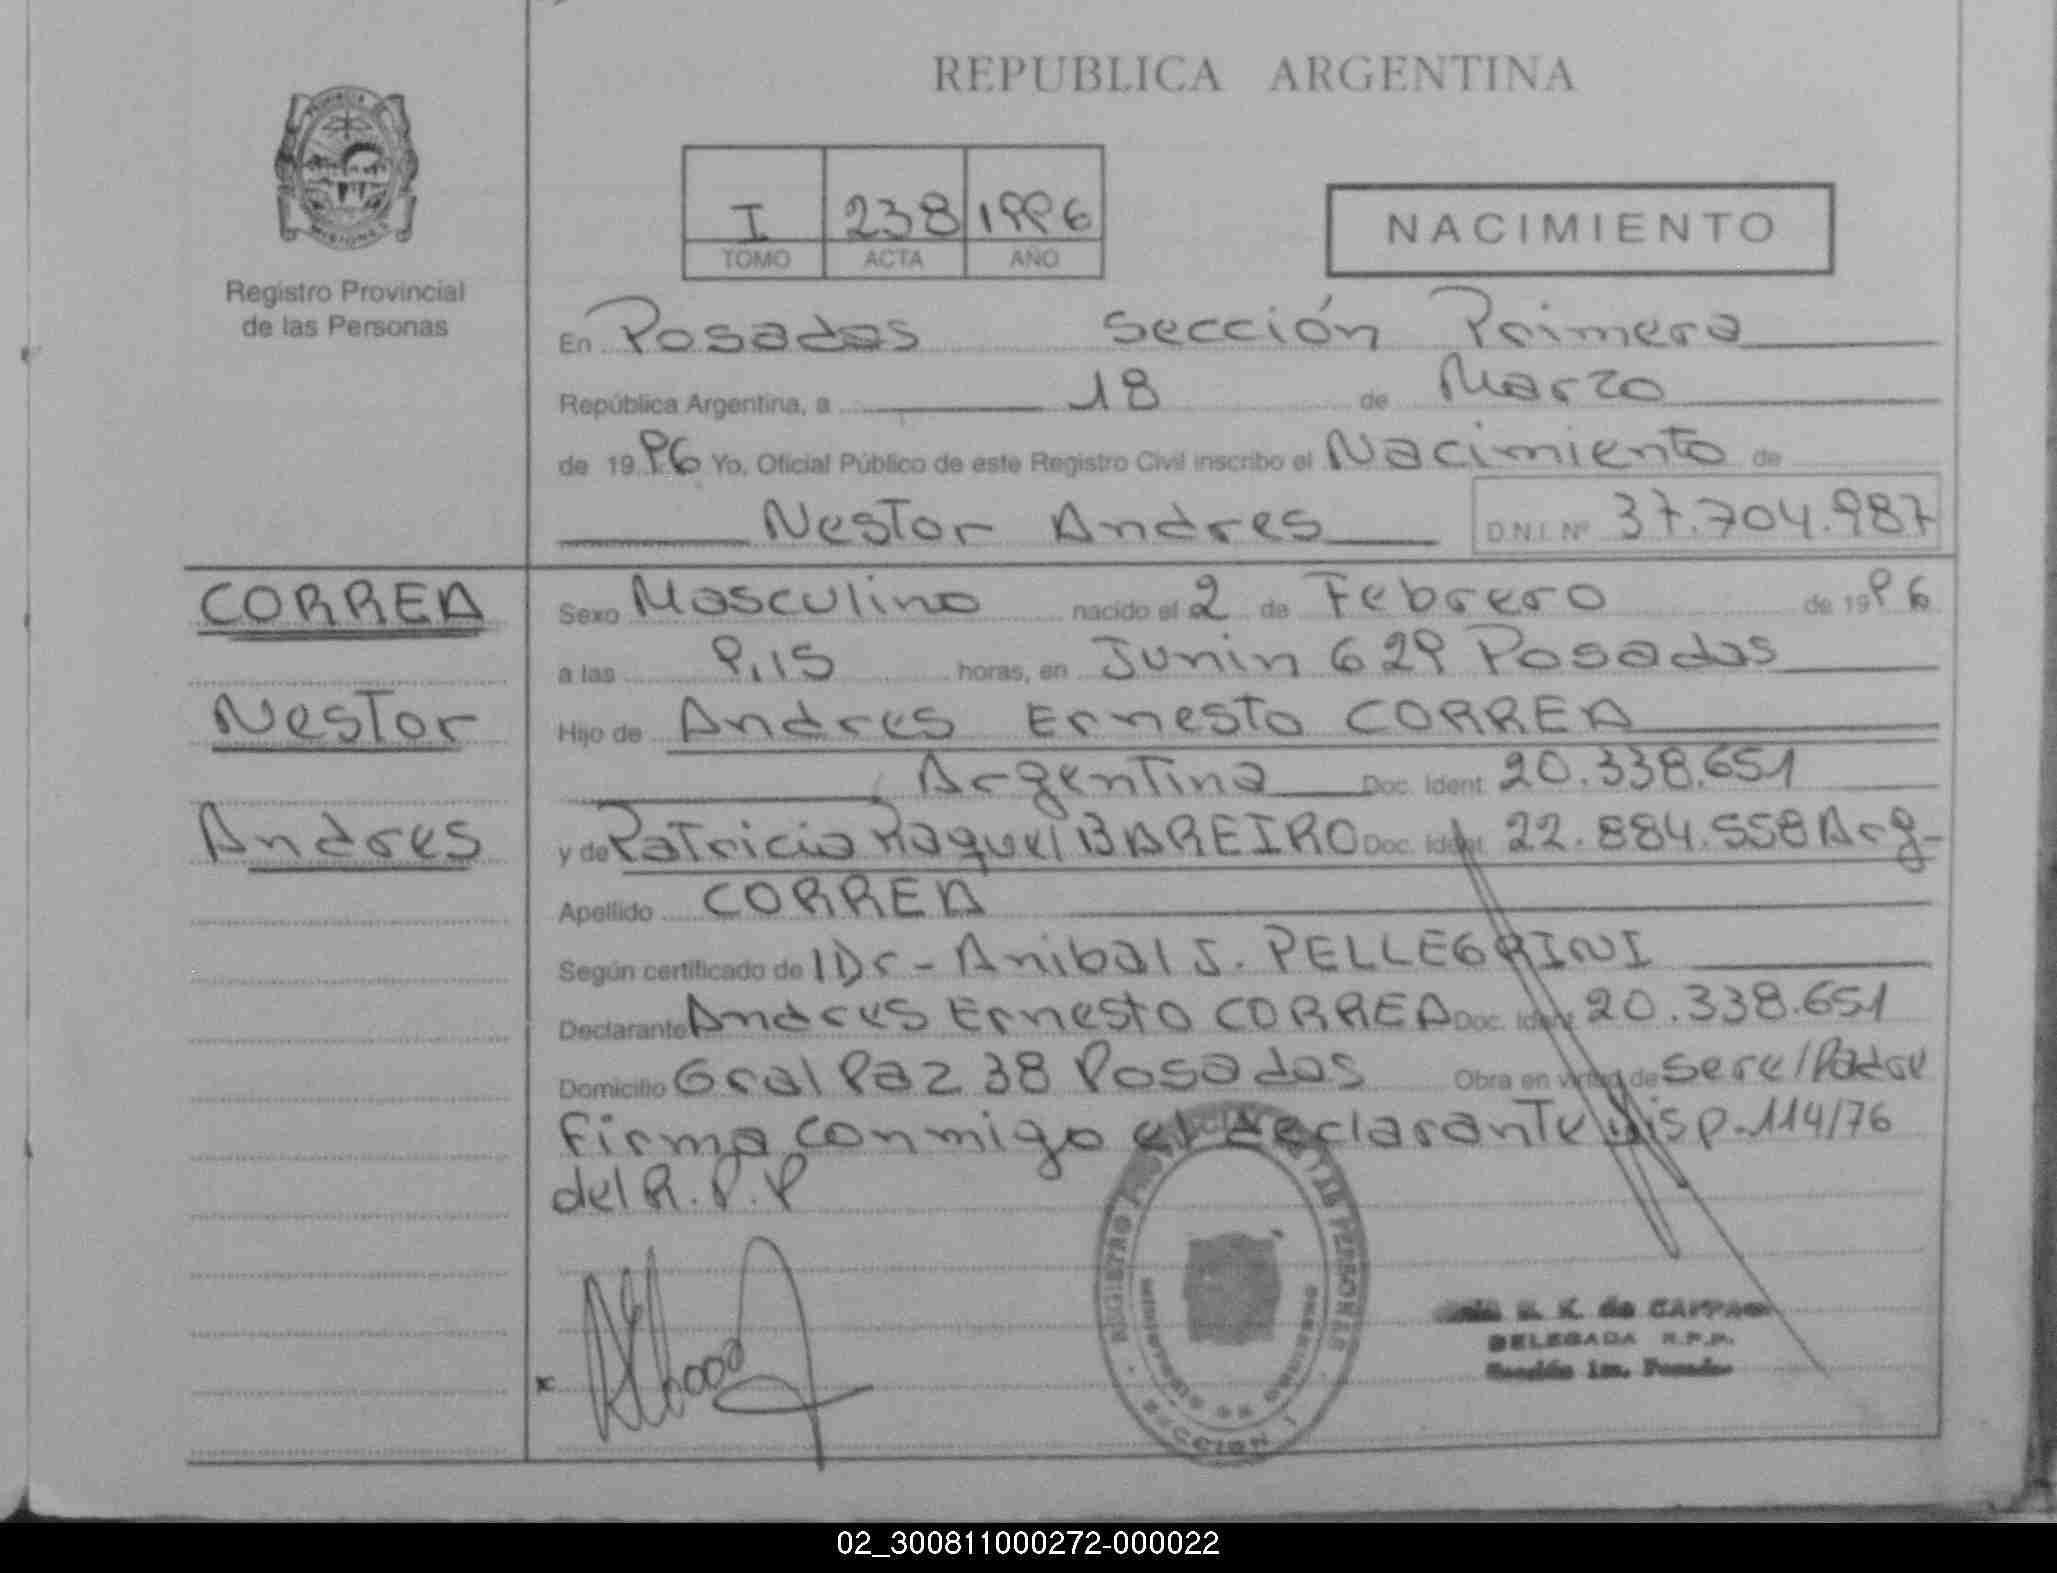 REPUBLICA ARGENTINA
PROVINCIA DE
MISIONES
Registro Provincial
de las Personas
I 238 1996
TOMO ACTA AÑO
NACIMIENTO
En Posadas Sección Primera
República Argentina, a 18 de Marzo
de 1996 Yo, Oficial Público de este Registro Civil inscribo el Nacimiento de
Nestor Andres D.N.I. Nº 37.704.987
CORREA
Nestor
Andres
Sexo Masculino nacido el 2 de Febrero de 1996
a las 9,15 horas, en Junin 629 Posadas
Hijo de Andres Ernesto CORREA
Argentina Doc. Ident. 20.338.651
y de Patricia Raquel BAREIRO Doc. Ident. 22.884.558 Arg-
Apellido CORREA
Según certificado de Dr- Anibal J. PELLEGRINI
Declarante Andres Ernesto CORREA Doc. Ident. 20.338.651
Domicilio Gral Paz 38 Posadas Obra en virtud de ser el Padre
Firma conmigo el declarante Disp. 114/76
del R.P.P
REGISTRO PROVINCIAL DE LAS PERSONAS
MINISTERIO DE GOBIERNO
SECCION 1
de
DELEGADA R.P.P.
Sección 1ra. Posadas
02_300811000272-000022